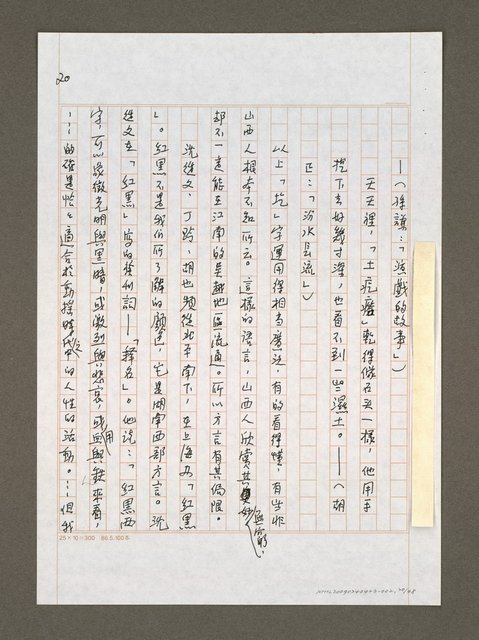 20
——(孫謙:「ippo戲的故事」)
天天裡,「土疙瘩」乾得像石头一樣,他用手
挖下去好幾寸深,也看不到一些濕土。——(胡
正:「汾水長流」)
以上「圪」字運用得相当廣泛,有的看得懂,有些非
山西人根本不知所云。這樣的語言,山西人欣賞其奧妙無窮,
却不一定能在江南的吳越地區流通。所以方言有其侷限。
沈從文、丁玲、胡也頻從北平南下,在上海办「紅黑
」。紅黑不是我们所了解的顏色,它是湖南西部方言。沈
從文在「紅黑」寫的發刊詞——「釋名」。他說:「紅黑兩
字,可以象徵光明與黑暗,或激烈與悲哀,或血與鐵來看,
……的確是恰恰適合於動搖時代之中的人性的活動。……但我
25×10=300 86.5.100本